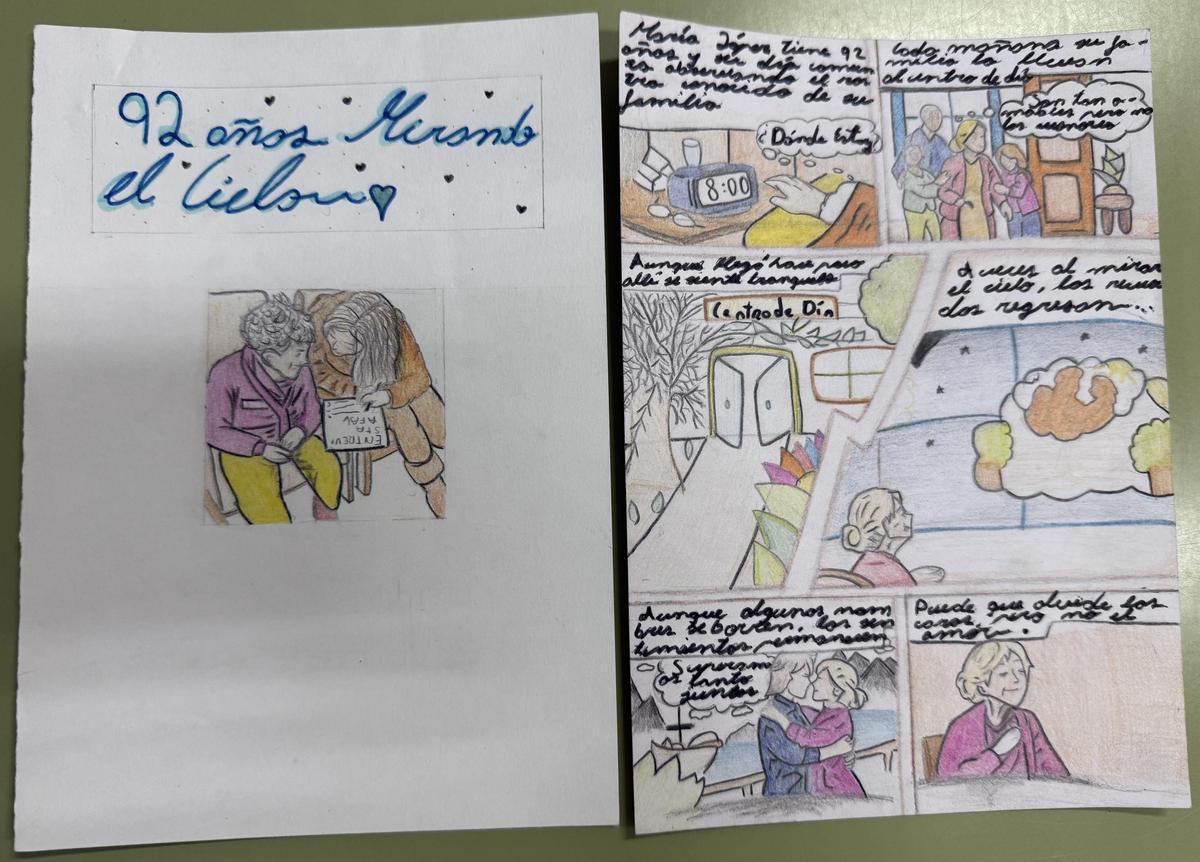 92 años Mirando
el Cielo
ENTREVI
STA
AFAV
María López tiene 92
años y su día comien
za observando el ros
tro conocido de su
familia
¿Dónde Estoy
8:00
Cada mañana su fa-
milia la llevan
al centro de día
Son tan a-
mables pero no
los
Aunque llegó hace poco
allí se siente tranquila
Centro de Día
A veces al mirar
el cielo, los recuer
dos regresan...
Aunque algunos nom
bres se borren, los sen
timientos permanecen
Superam
os tanto
juntos
Puede que olvide las
caras, pero no el
amor.